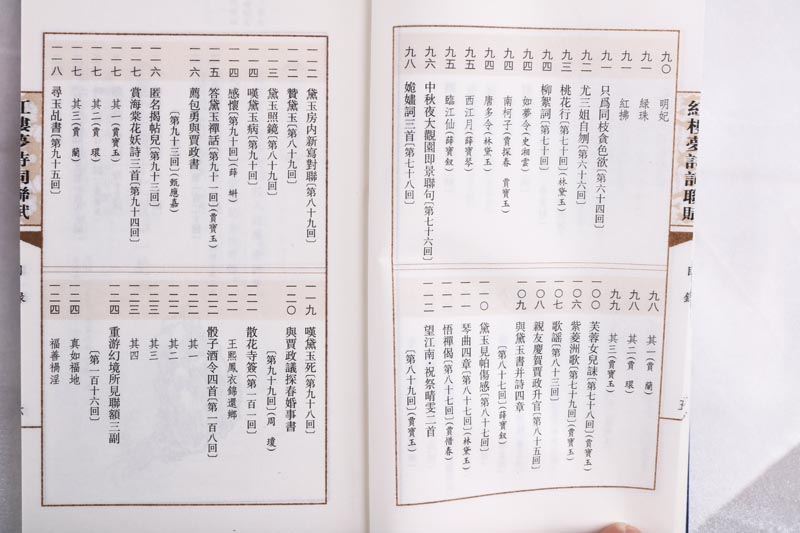 紅樓夢詩詞聯賦
目錄
五
九〇 明妃
九一 綠珠
九一 紅拂
九一 只爲同枝貪色欲〔第六十四回〕
九二 尤三姐自刎〔第六十六回〕
九三 桃花行〔第七十回〕(林黛玉)
九四 柳絮詞〔第七十回〕
九四 如夢令(史湘雲)
九四 南柯子(賈探春 賈寶玉)
九四 唐多令(林黛玉)
九五 西江月(薛寶琴)
九五 臨江仙(薛寶釵)
九六 中秋夜大觀園即景聯句〔第七十六回〕
九八 姽嫿詞三首〔第七十八回〕
九八 其一(賈蘭)
九八 其二(賈環)
九九 其三(賈寶玉)
一〇〇 芙蓉女兒誄〔第七十八回〕(賈寶玉)
一〇六 紫菱洲歌〔第七十九回〕(賈寶玉)
一〇七 歌謡〔第八十三回〕
一〇八 親友慶賀賈政升官〔第八十五回〕
一〇九 與黛玉書并詩四章
〔第八十七回〕(薛寶釵)
一一〇 黛玉見帕傷感〔第八十七回〕
一一一 琴曲四章〔第八十七回〕(林黛玉)
一一一 悟禪偈〔第八十七回〕(賈惜春)
一一二 望江南·祝祭晴雯二首
〔第八十九回〕(賈寶玉)
一一二 黛玉房内新寫對聯〔第八十九回〕
一一二 贊黛玉〔第八十九回〕
一一三 黛玉照鏡〔第八十九回〕
一一四 嘆黛玉病〔第九十回〕
一一四 感懷〔第九十回〕(薛蝌)
一一五 答黛玉禪話〔第九十一回〕(賈寶玉)
一一六 薦包勇與賈政書
〔第九十三回〕(甄應嘉)
一一六 匿名揭帖兒〔第九十三回〕
一一七 賞海棠花妖詩三首〔第九十四回〕
一一七 其一(賈寶玉)
一一七 其二(賈環)
一一七 其三(賈蘭)
一一八 尋玉乩書〔第九十五回〕
一一九 嘆黛玉死〔第九十八回〕
一二〇 與賈政議探春婚事書
〔第九十九回〕(周瓊)
一二一 散花寺簽〔第一百一回〕
一二一 王熙鳳衣錦還鄉
一二二 骰子酒令四首〔第一百八回〕
一二二 其一
一二二 其二
一二三 其三
一二三 其四
一二四 重游幻境所見聯額三副
〔第一百十六回〕
一二四 真如福地
一二四 福善禍淫
紅樓夢詩詞聯賦
目錄
六